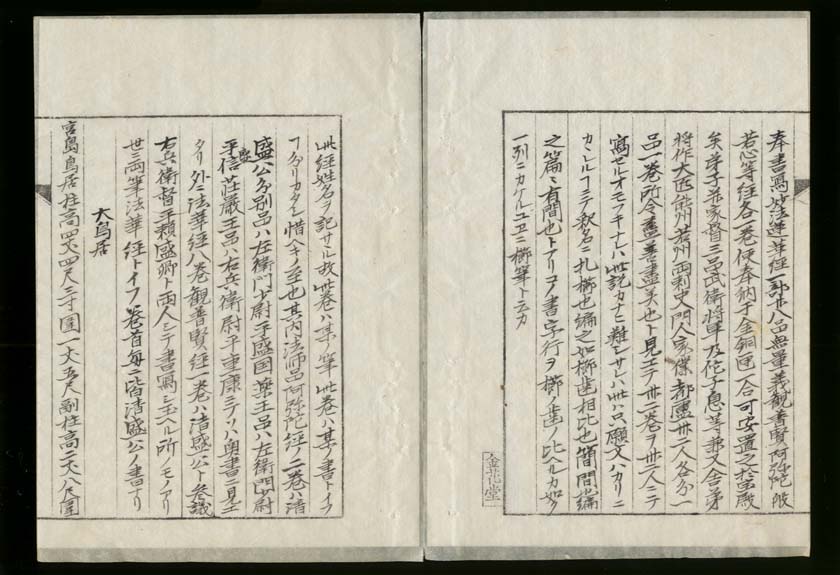 奉書寫妙法蓮華経一部廿八品無量義観普賢阿弥陀般
若心等経各一巻便奉納于金銅篋一合可安置之於宝殿
矣弟子并家督三品武衛将軍及佗子息等兼又舎弟
将作大匠能州若州両刺史門人家僕都盧卅二人各分一
品一巻所令盡善盡美也ト見エテ卅二巻ヲ卅二人ニテ
寫セルオモフキナレハ此説カナヒ難シサレハ此ハ只願文ハカリニ
カヽレルニテ釈名ニ札櫛也編之如櫛歯相比也簡間也編
之篇ニ有間也トアリコノ書字行ヲ櫛ノ歯ノ比ヘルカ如ク
一列ニカケルユヱニ櫛筆ト云カ
金花堂
此経姓名ヲ記サル故此巻ハ某ノ筆此巻ハ其ノ書トイフ
ヿ分リカタシ惜ヘキノ至也其内法師品阿弥陀経ノ二巻ハ清
盛公分別品ハ左衛門少尉平盛国薬王品ハ左衛門少尉
平盛信荘厳王品ハ右兵衛尉平重康ニテソハ奥書ニ見エ
タリ外ニ法華経八巻観普賢経一巻ハ清盛公ト参議
右兵衛督平頼盛卿ト両人ニテ書寫シ玉ヘル所ノモノアリ
世ニ両筆法華経トイフ巻首毎ニ皆清盛公ノ書ナリ
大鳥居
宮島鳥居柱高四丈四尺二寸圍一丈五尺副柱高二丈八尺圍